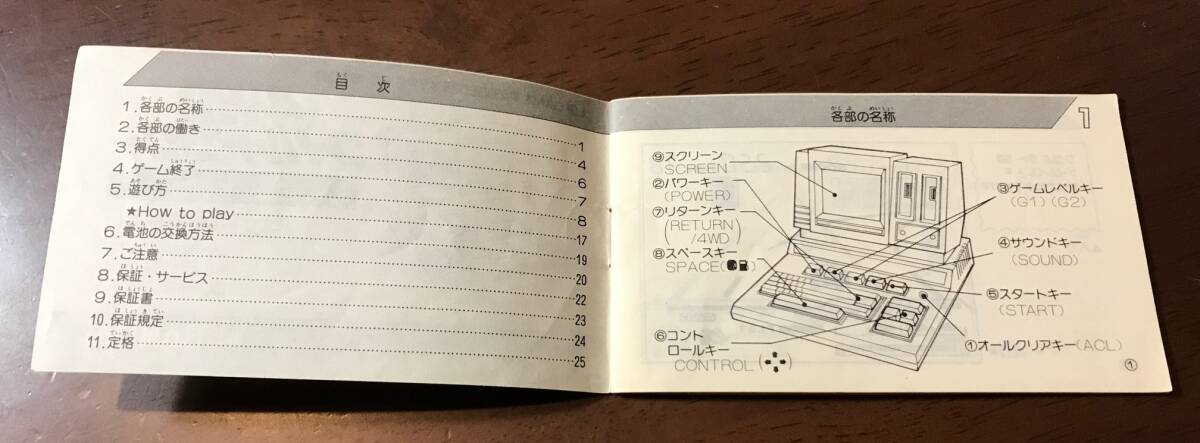 目次
1.各部の名称 1
2.各部の働き 4
3.得点 6
4.ゲーム終了 7
5.遊び方 8
★How to play 17
6.電池の交換方法 19
7.ご注意 20
8.保証・サービス 22
9.保証書 23
10.保証規定 24
11.定格 25
各部の名称
1
⑨スクリーン
SCREEN
②パワーキー
(POWER)
⑦リターンキー
(RETURN
/4WD)
⑧スペースキー
SPACE
⑥コント
ロールキー
CONTROL
③ゲームレベルキー
(G1)(G2)
④サウンドキー
(SOUND)
⑤スタートキー
(START)
①オールクリアキー(ACL)
①